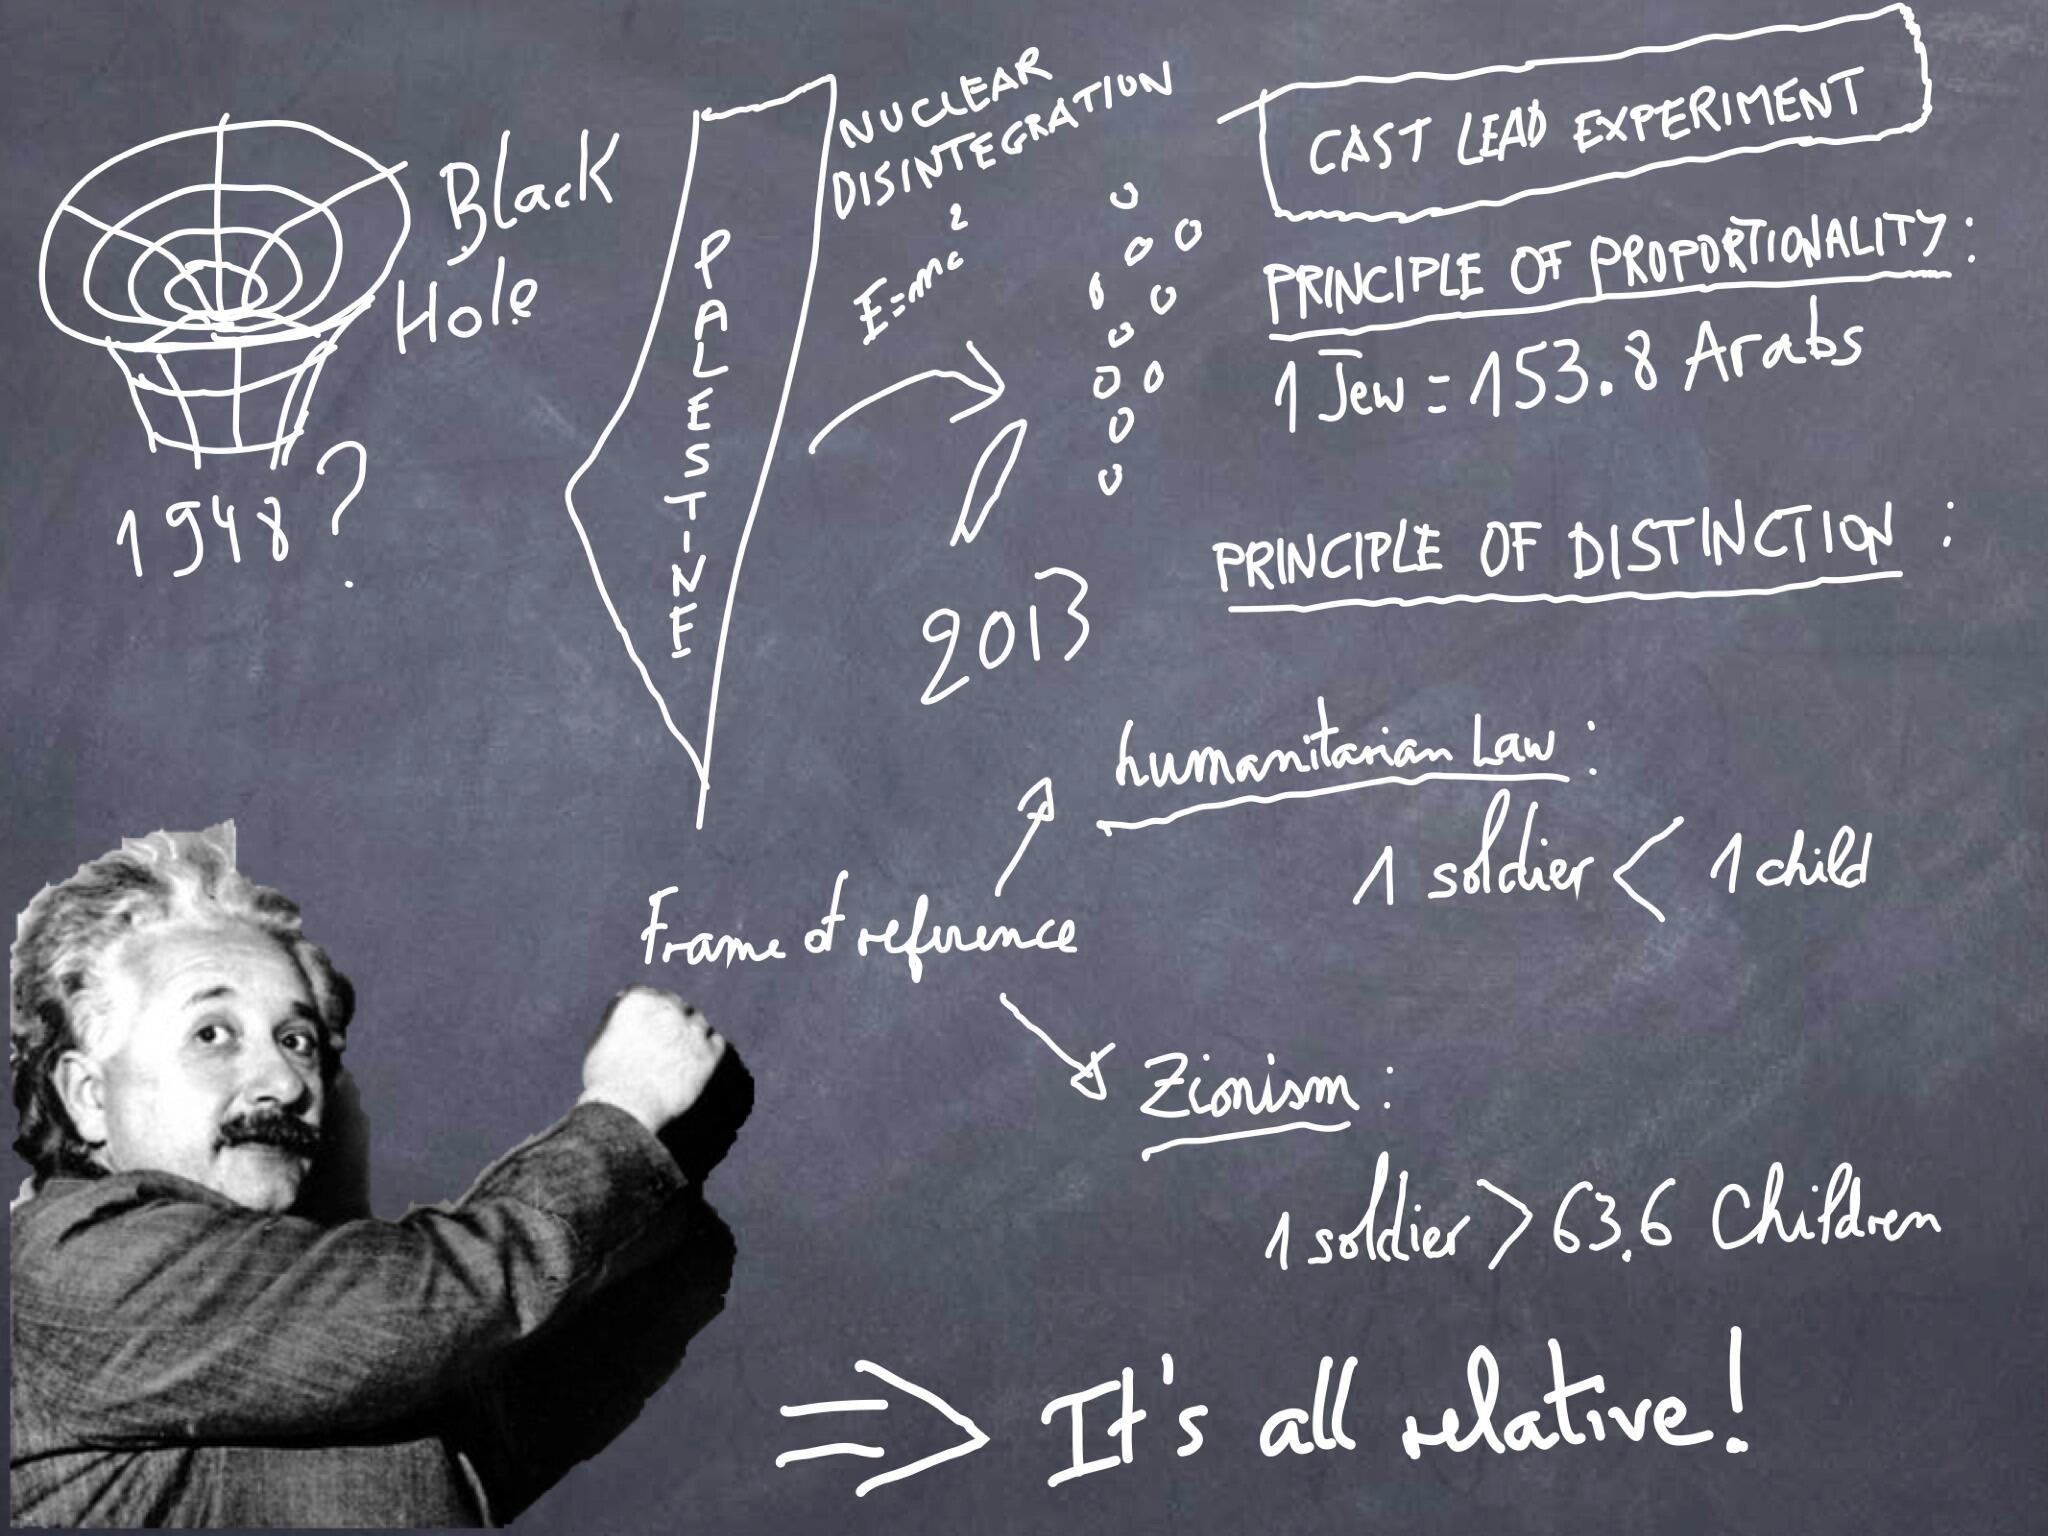 Black
Hole
1948?
PALESTINE
NUCLEAR
DISINTEGRATION
E=mc²
2013
CAST LEAD EXPERIMENT
PRINCIPLE OF PROPORTIONALITY:
1 Jew = 153.8 Arabs
PRINCIPLE OF DISTINCTION:
Frame of reference
humanitarian Law:
1 soldier < 1 child
Zionism:
1 soldier > 63.6 Children
⇒ It's all relative!